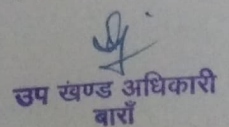 उप खण्ड अधिकारी
बाराँ